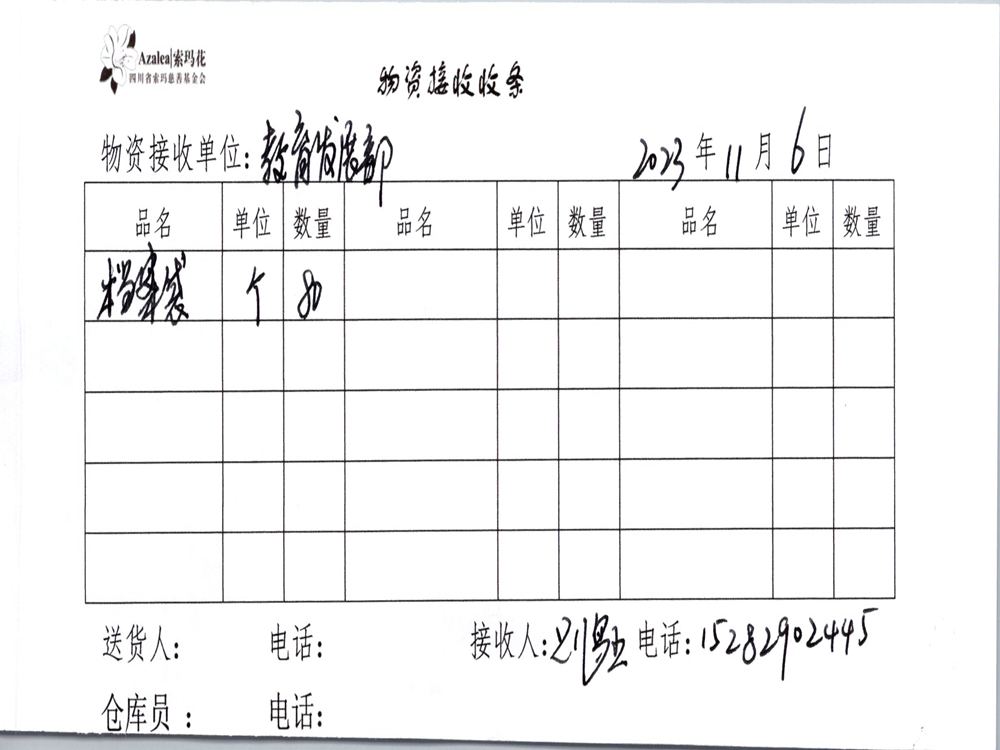 Azalea|索玛花
四川省索玛慈善基金会
物资接收收条
物资接收单位:教育发展部 2023年11月6日
品名 单位 数量 品名 单位 数量 品名 单位 数量
档案袋 个 80
送货人: 电话: 接收人:刘 电话:15282902445
仓库员: 电话: